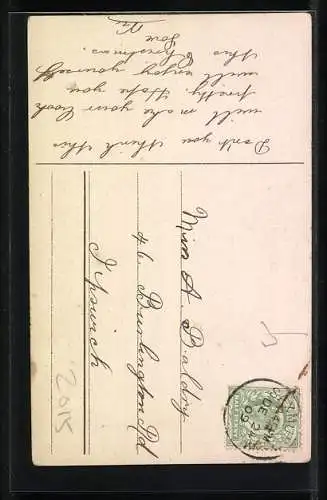 Don't you think this
will make your book
pretty. Hope you
will enjoy yourself
this Christmas.
love
Miss A. Baldry
46 Burlington Rd
Ipswich
2015